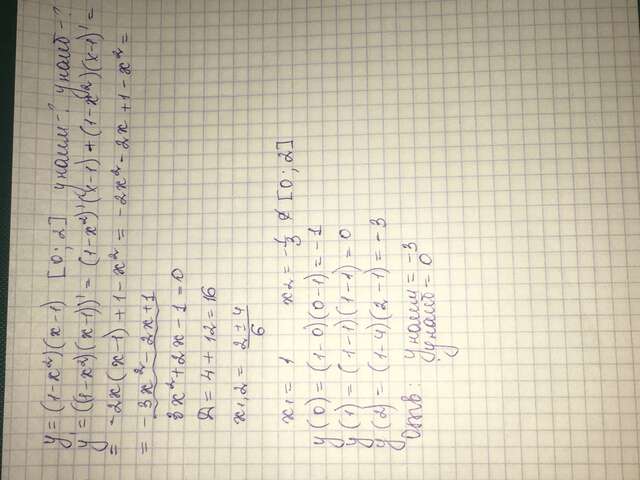 y = (1-x²)(x-1) [0; 2] yнаим-? yнаиб-?
y' = ((1-x²)(x-1))' = (1-x²)'(x-1) + (1-x²)(x-1)' =
= -2x(x-1) + 1-x² = -2x² - 2x + 1 - x² =
= -3x² - 2x + 1
3x² + 2x - 1 = 0
D = 4 + 12 = 16
x₁,₂ = (2 ± 4)/6
x₁ = 1 x₂ = -1/3 ∉ [0; 2]
y(0) = (1-0)(0-1) = -1
y(1) = (1-1)(1-1) = 0
y(2) = (1-4)(2-1) = -3
Отв: yнаим = -3
yнаиб = 0